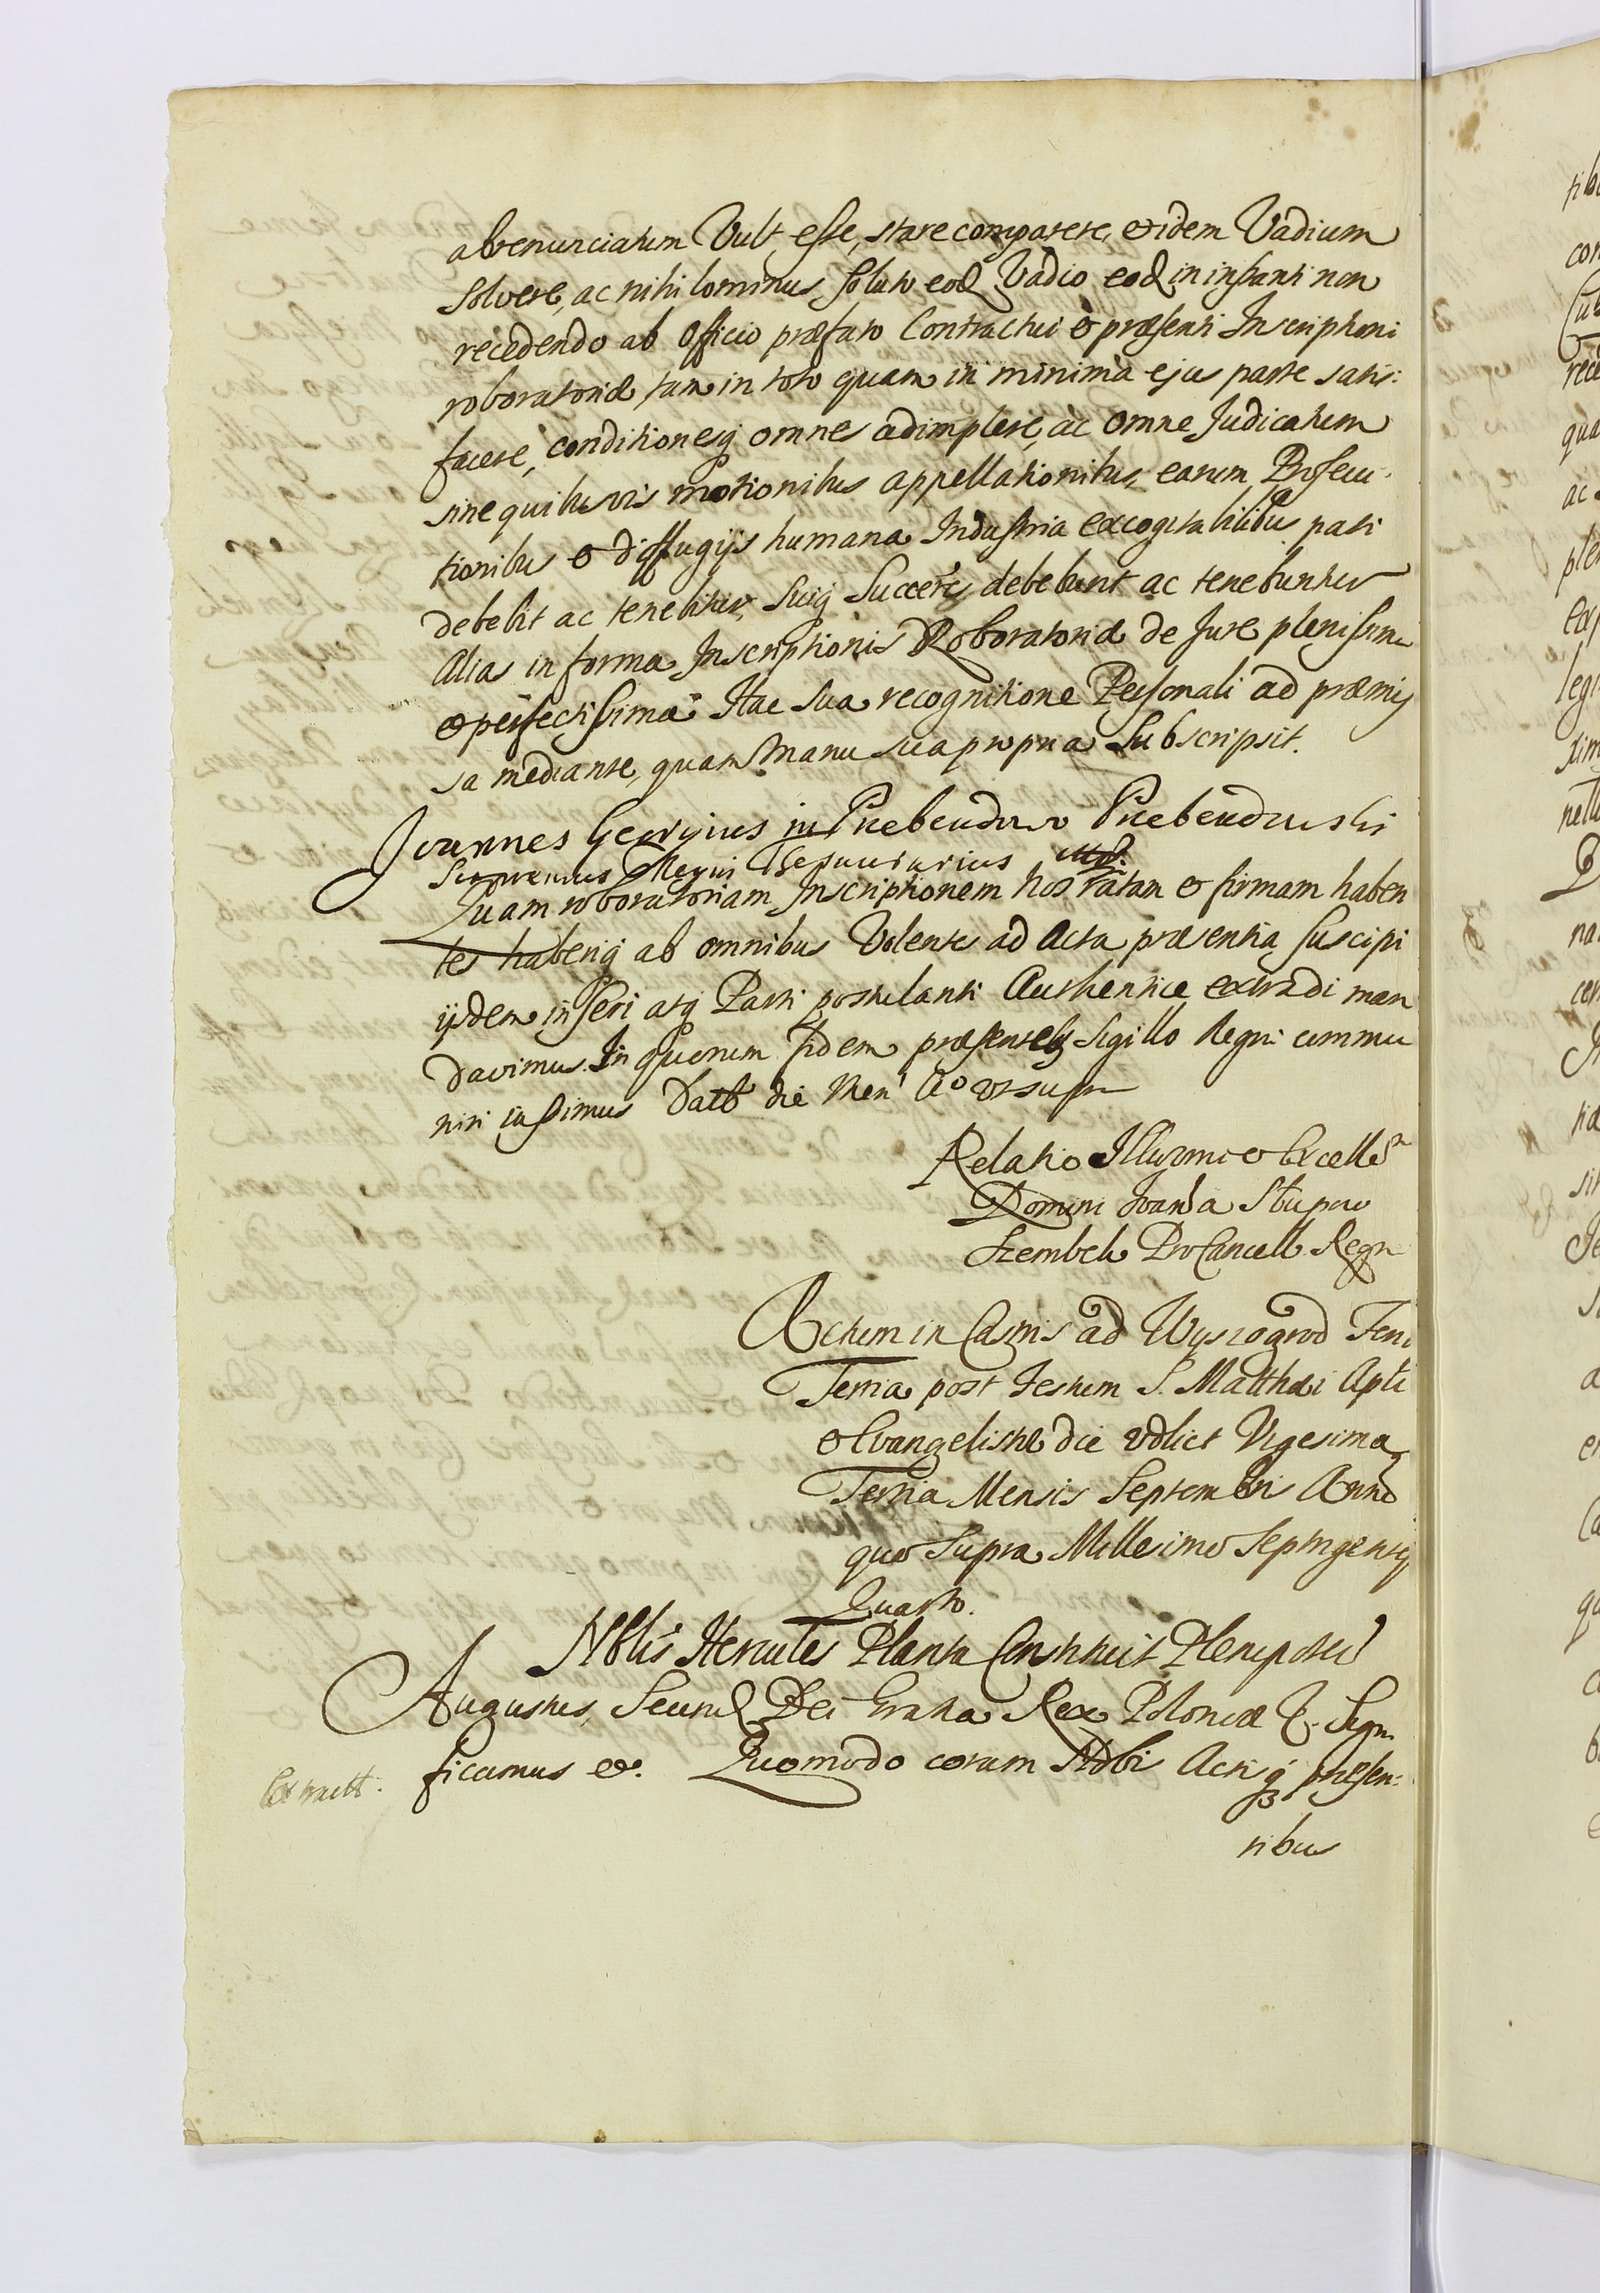 abrenunciatum Vult esse, stare comparere, et idem Vadium
solvere, ac nihilominus soluto eod Vadio eod in instanti non
recedendo ab Officio præfato Contractui et præsenti Inscriptioni
roboratoriæ tam in toto quam in minima ejus parte satis:
facere, conditionesq omnes adimplere, ac omne Judicatum
sine quibusvis motionibus appellationibus, earum Prosecu-
tionibus et diffugijs humana Industria excogitabilibus pati
debebit ac tenebitur, suiq Succeres debebunt ac tenebuntur
Alias in forma Inscriptionis Roboratoriæ de Jure plenissima
et perfectissima Hac sua recognitione Personali ad præmis
sa mediante, quam Manu sua propria Subscripsit.
Joannes Georgius in Przebendowo Przebendowski
Supremus Regni Thesaurarius mp.
Quam roboratoriam Inscriptionem Nos ratam et firmam haben
tes haberiq ab omnibus Volentes ad Acta præsentia suscipi
ijsdem inseri atq Parti postulanti Authentice extradi man
davimus. In quorum fidem præsentes Sigillo Regni commu
niri jussimus Datt die Men Ao ut supra
Relatio Illmi et Excellm
Domini Joannis a Słupow
Szembek ProCancell Regni
Actum in Castris ad Wyszogrod Feria
Tertia post Festum S. Matthæi Apli
et Evangelistæ die vdlict Vigesima
Tertia Mensis Septembri Anno
quo supra Millesimo Septingentes
Quarto.
Nblis Hercules Planta Constituit Plenipoten
Augustus Secund Dei Gratia Rex Poloniæ &. Signi
ficamus &. Quomodo coram Nobi Acti q præsen:
Extractt:
tibus